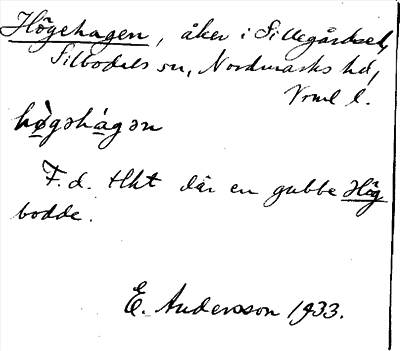 Högehagen, åker i Sillegårdsed,
Silbodals sn, Nordmarks hd,
Vrml l.
hø̀gəhàgən
F.d. tkt där en gubbe Hög
bodde.
E. Andersson 1933.